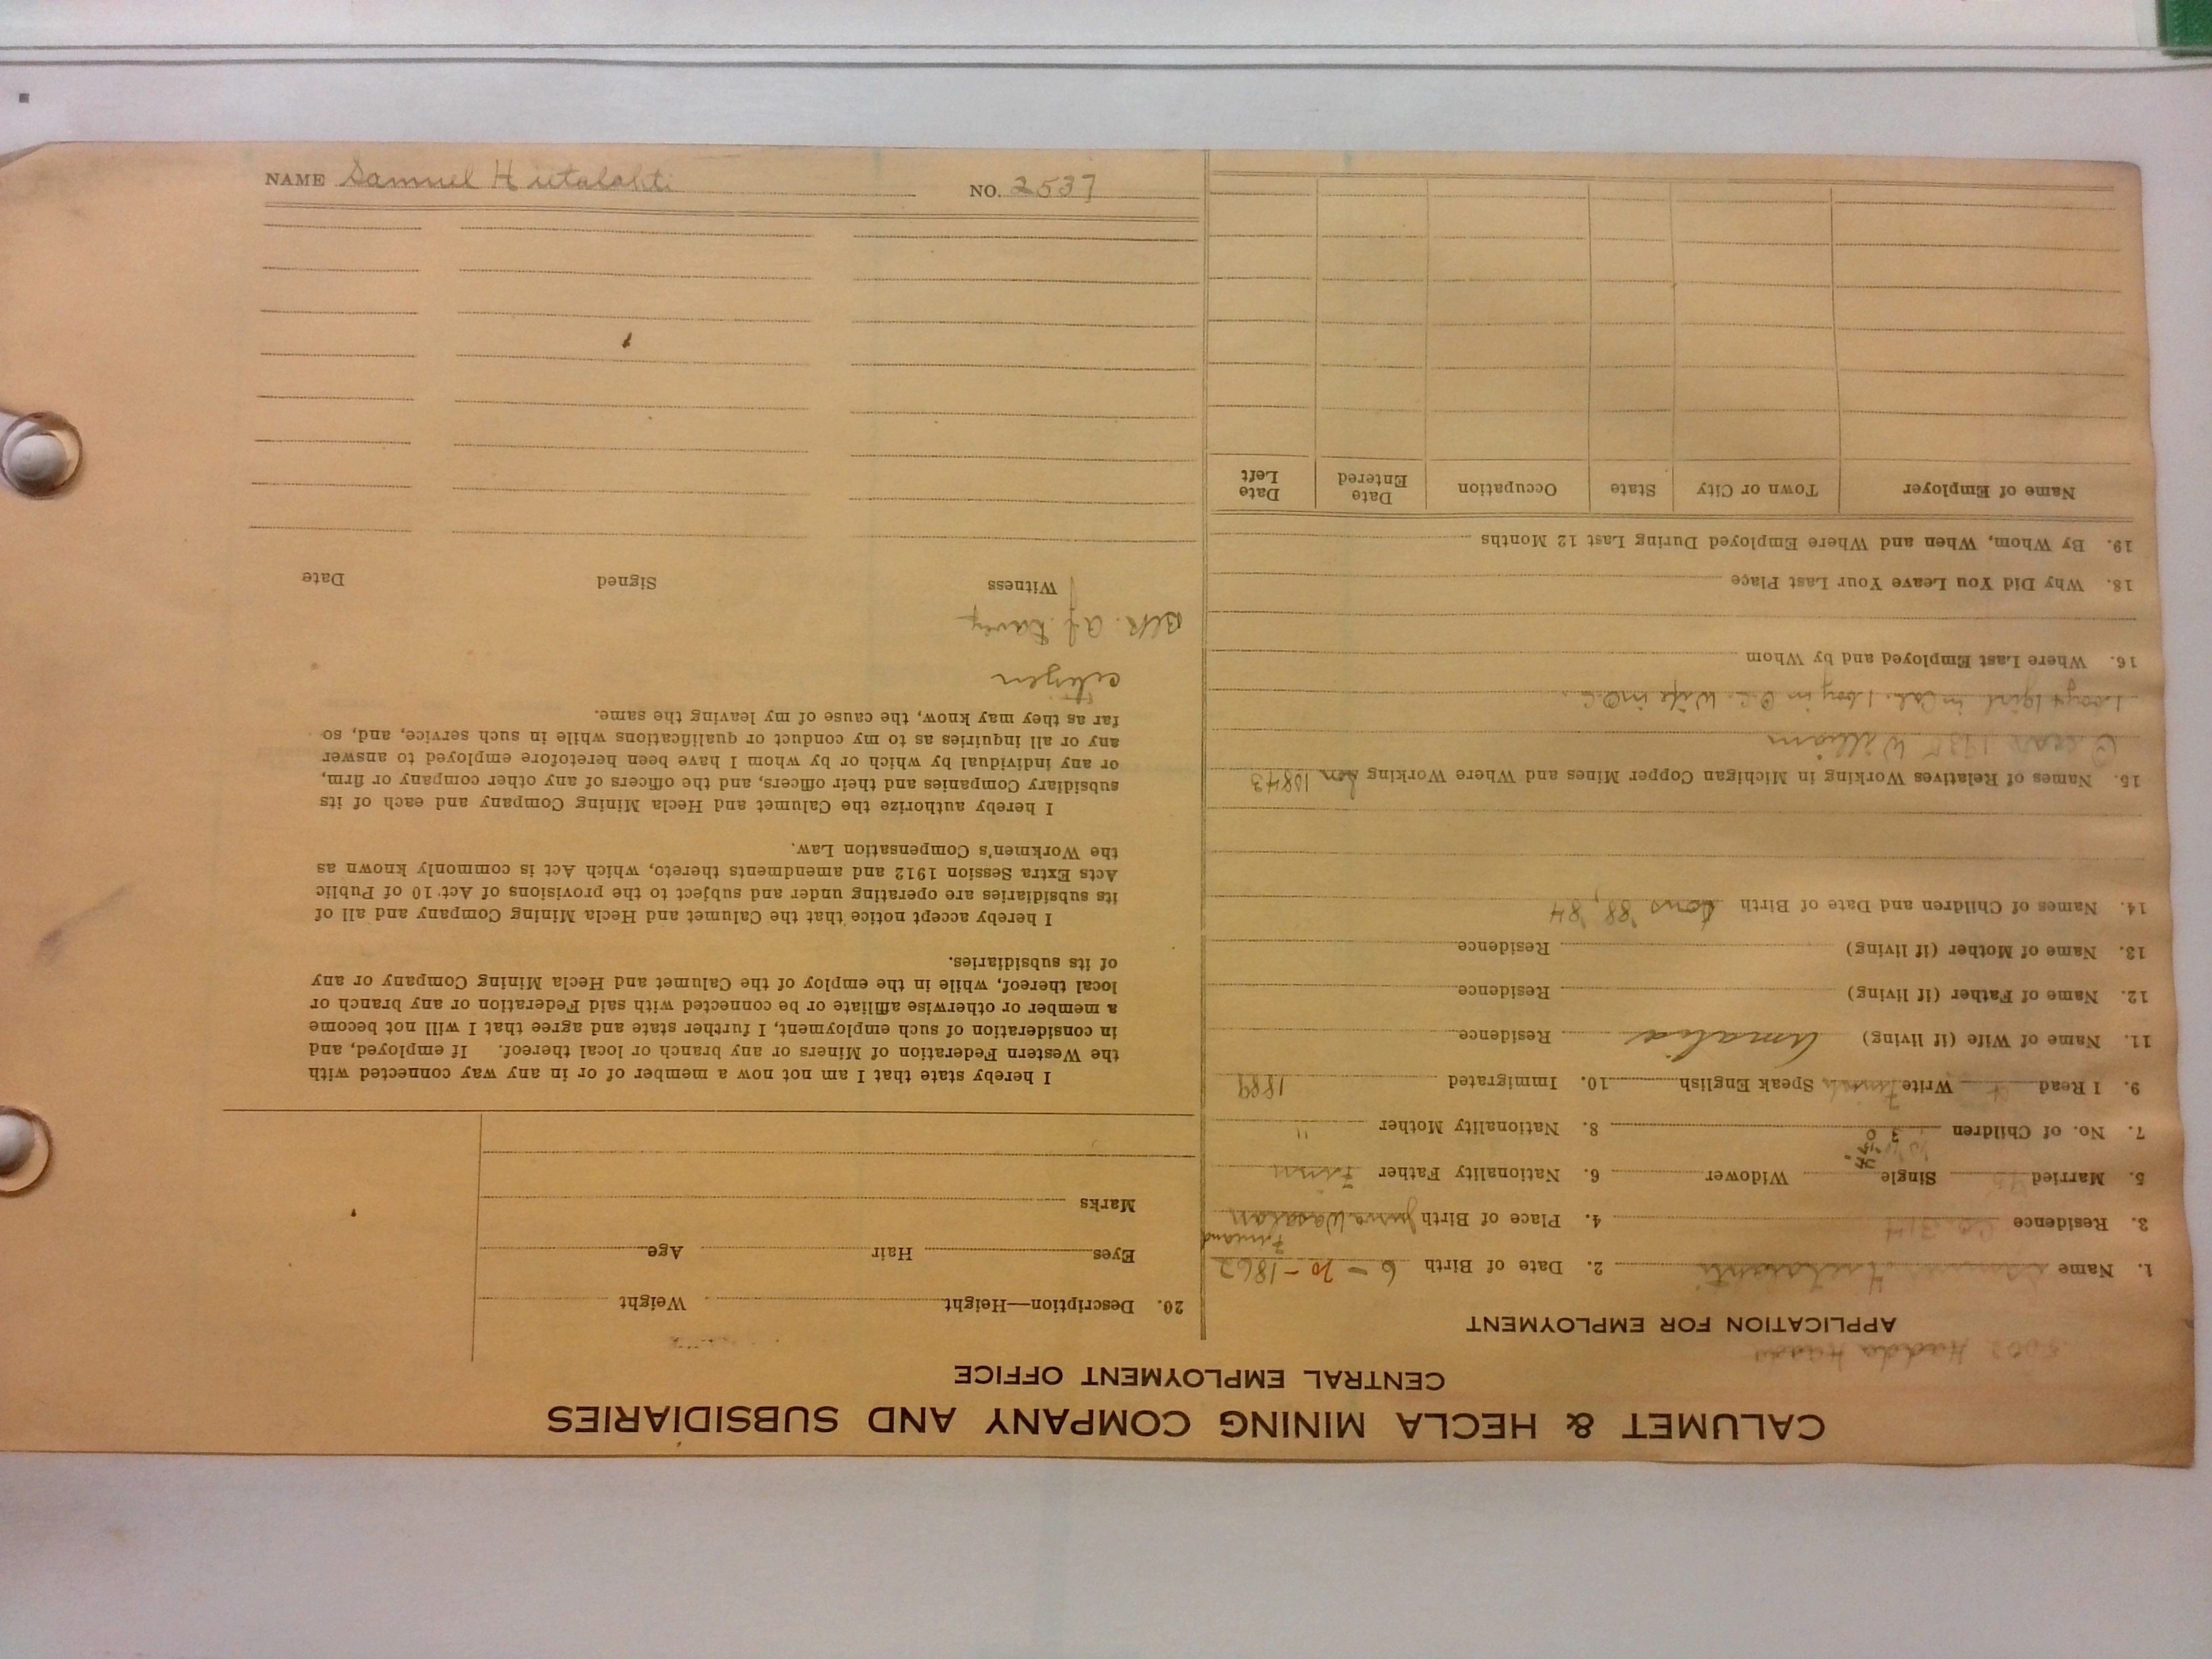 NAME Samuel Hietalahti NO. 2537
CALUMET & HECLA MINING COMPANY AND SUBSIDIARIES
CENTRAL EMPLOYMENT OFFICE
APPLICATION FOR EMPLOYMENT
1. Name Samuel Hietalahti 2. Date of Birth 6-20-1862
3. Residence 4. Place of Birth Wasalan
Finland
5. Married Single Widower 6. Nationality Father Finn
7. No. of Children 3 0 8. Nationality Mother "
9. I Read Write Finnish Speak English 10. Immigrated 1889
11. Name of Wife (if living) Amalia Residence
12. Name of Father (if living) Residence
13. Name of Mother (if living) Residence
14. Names of Children and Date of Birth Sons '88, '84
15. Names of Relatives Working in Michigan Copper Mines and Where Working Son 10843
Oscar, 1935 William
1 boy + 1 girl in Cal. 1 boy in O.C. Wife in O.C.
16. Where Last Employed and by Whom
18. Why Did You Leave Your Last Place
19. By Whom, When and Where Employed During Last 12 Months
Name of Employer Town or City State Occupation Date Entered Date Left
20. Description—Height Weight
Eyes Hair Age
Marks
I hereby state that I am not now a member of or in any way connected with
the Western Federation of Miners or any branch or local thereof. If employed, and
in consideration of such employment, I further state and agree that I will not become
a member or otherwise affiliate or be connected with said Federation or any branch or
local thereof, while in the employ of the Calumet and Hecla Mining Company or any
of its subsidiaries.
I hereby accept notice that the Calumet and Hecla Mining Company and all of
its subsidiaries are operating under and subject to the provisions of Act 10 of Public
Acts Extra Session 1912 and amendments thereto, which Act is commonly known as
the Workmen's Compensation Law.
I hereby authorize the Calumet and Hecla Mining Company and each of its
subsidiary Companies and their officers, and the officers of any other company or firm,
or any individual by which or by whom I have been heretofore employed to answer
any or all inquiries as to my conduct or qualifications while in such service, and, so
far as they may know, the cause of my leaving the same.
citizen
Witness Signed Date